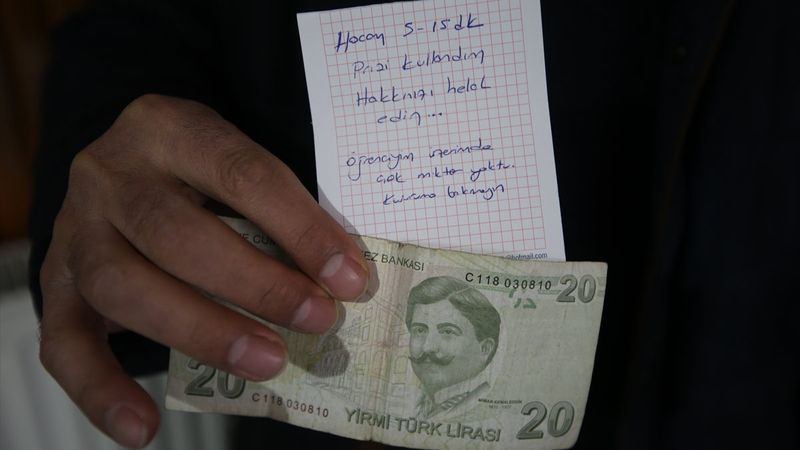 Hocam 5-15 dk
Prizi kullandım
Hakkınızı helal
edin...
Öğrenciyim üzerimde
çok miktar yoktu.
Kusura bakmayın
@hotmail.com
EZ BANKASI
C118 030810 20
MİMAR KEMALEDDİN
20 C118 030810
YİRMİ TÜRK LİRASI 20